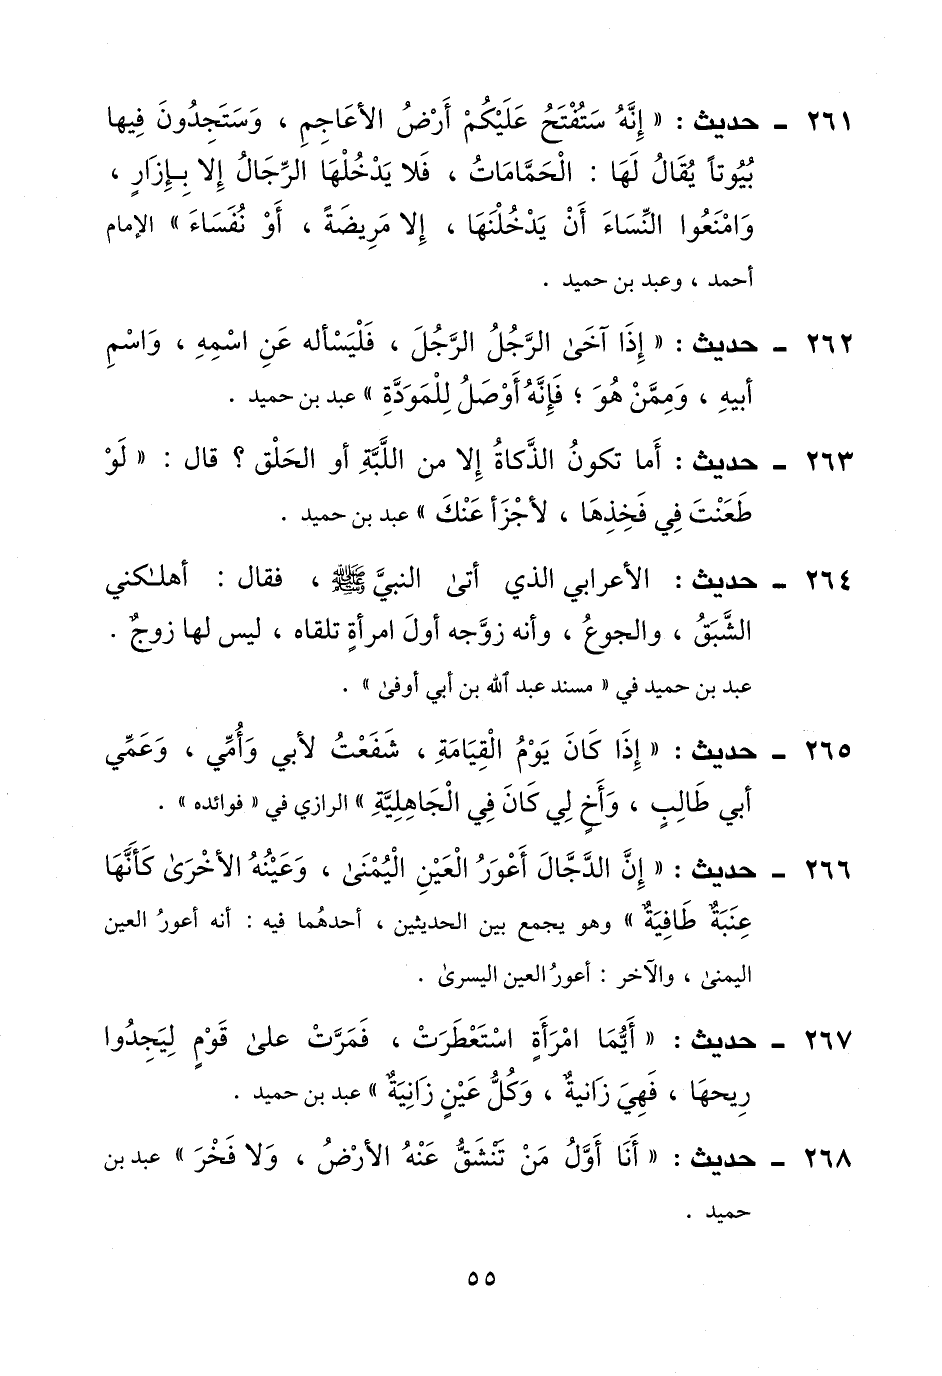 ٢٦١ ـ حديث : « إِنَّهُ سَتُفْتَحُ عَلَيْكُمْ أَرْضُ الأعَاجِمِ ، وَسَتَجِدُونَ فِيها
بُيُوتاً يُقَالُ لَهَا : الْحَمَّامَاتُ ، فَلا يَدْخُلْهَا الرِّجَالُ إِلا بِإِزَارٍ ،
وَامْنَعُوا النِّسَاءَ أَنْ يَدْخُلْنَهَا ، إِلا مَرِيضَةً ، أَوْ نُفَسَاءَ » الإمام
أحمد ، وعبد بن حميد .
٢٦٢ ـ حديث : « إِذَا آخَىٰ الرَّجُلُ الرَّجُلَ ، فَلْيَسْأله عَنِ اسْمِهِ ، وَاسْمِ
أبيهِ ، وَمِمَّنْ هُوَ ؛ فَإِنَّهُ أَوْصَلُ لِلْمَوَدَّةِ » عبد بن حميد .
٢٦٣ ـ حديث : أَما تكونُ الذَّكاةُ إِلا من اللَّبَّةِ أو الحَلْق ؟ قال : « لَوْ
طَعَنْتَ فِي فَخِذِهَا ، لأجْزَأ عَنْكَ » عبد بن حميد .
٢٦٤ ـ حديث : الأعرابي الذي أتىٰ النبيَّ ﷺ ، فقال : أهلـٰكني
الشَّبَقُ ، والجوعُ ، وأنه زوَّجه أولَ امرأةٍ تلقاه ، ليس لها زوجٌ .
عبد بن حميد في « مسند عبد ٱلله بن أبي أوفىٰ » .
٢٦٥ ـ حديث : « إِذَا كَانَ يَوْمُ الْقِيَامَةِ ، شَفَعْتُ لأبي وَأُمِّي ، وَعَمِّي
أبي طَالِبٍ ، وَأَخٍ لِي كَانَ فِي الْجَاهِلِيَّةِ » الرازي في « فوائده » .
٢٦٦ ـ حديث : « إِنَّ الدَّجَّالَ أَعْوَرُ الْعَيْنِ الْيُمْنَىٰ ، وَعَيْنُهُ الأخْرَىٰ كَأَنَّهَا
عِنَبَةٌ طَافِيَةٌ » وهو يجمع بين الحديثين ، أحدهُما فيه : أنه أعورُ العين
اليمنىٰ ، والآخر : أعورُ العين اليسرىٰ .
٢٦٧ ـ حديث : « أَيُّمَا امْرَأَةٍ اسْتَعْطَرَتْ ، فَمَرَّتْ علىٰ قَوْمٍ لِيَجِدُوا
رِيحهَا ، فَهِيَ زَانيةٌ ، وَكُلُّ عَيْنٍ زَانِيَةٌ » عبد بن حميد .
٢٦٨ ـ حديث : « أَنَا أَوَّلُ مَنْ تَنْشَقُّ عَنْهُ الأرْضُ ، وَلا فَخْرَ » عبد بن
حميد .
٥٥